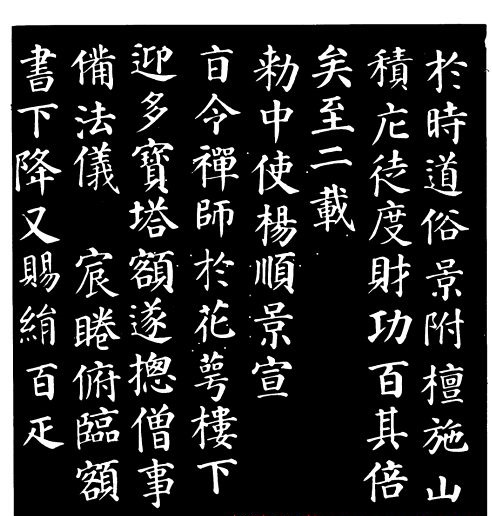 於時道俗景附檀施山
積庀徒度財功百其倍
矣至二載
勑中使楊順景宣
㫖令禪師於花萼樓下
迎多寶塔額遂揔僧事
備法儀 宸睠俯臨額
書下降又賜絹百疋